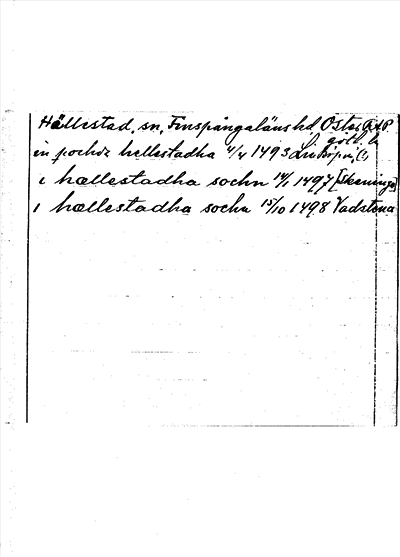 Hällestad, sn, Finspångaläns hd Öster
götl. l.
in pochdz hellestadha 4/4 1493
i hællestadha sochn 14/1 1497 [Skeninge]
i hællestadha sochn 15/10 1498 Vadstena